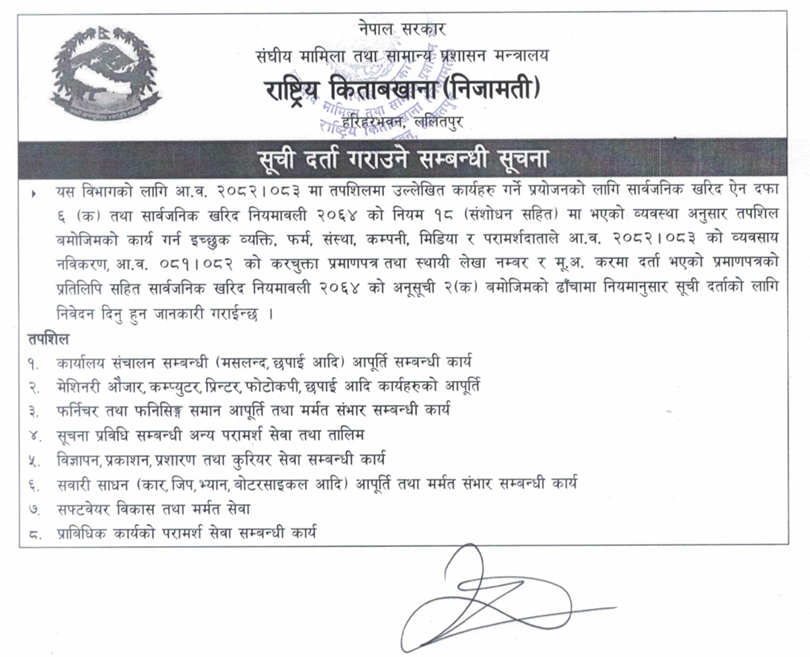 नेपाल सरकार
संघीय मामिला तथा सामान्य प्रशासन मन्त्रालय
राष्ट्रिय किताबखाना (निजामती)
हरिहरभवन, ललितपुर
सूची दर्ता गराउने सम्बन्धी सूचना
यस विभागको लागि आ.व. २०८२।०८३ मा तपशिलमा उल्लेखित कार्यहरु गर्ने प्रयोजनको लागि सार्वजनिक खरिद ऐन दफा
६ (क) तथा सार्वजनिक खरिद नियमावली २०६४ को नियम १८ (संशोधन सहित) मा भएको व्यवस्था अनुसार तपशिल
बमोजिमको कार्य गर्न इच्छुक व्यक्ति, फर्म, संस्था, कम्पनी, मिडिया र परामर्शदाताले आ.व. २०८२।०८३ को व्यवसाय
नविकरण, आ.व. ०८१।०८२ को करचुक्ता प्रमाणपत्र तथा स्थायी लेखा नम्बर र मू.अ. करमा दर्ता भएको प्रमाणपत्रको
प्रतिलिपि सहित सार्वजनिक खरिद नियमावली २०६४ को अनूसूची २(क) बमोजिमको ढाँचामा नियमानुसार सूची दर्ताको लागि
निवेदन दिनु हुन जानकारी गराईन्छ ।
तपशिल
१. कार्यालय संचालन सम्बन्धी (मसलन्द, छपाई आदि) आपूर्ति सम्बन्धी कार्य
२. मेशिनरी औजार, कम्प्युटर, प्रिन्टर, फोटोकपी, छपाई आदि कार्यहरुको आपूर्ति
३. फर्निचर तथा फनिसिङ्ग समान आपूर्ति तथा मर्मत संभार सम्बन्धी कार्य
४. सूचना प्रविधि सम्बन्धी अन्य परामर्श सेवा तथा तालिम
५. विज्ञापन, प्रकाशन, प्रशारण तथा कुरियर सेवा सम्बन्धी कार्य
६. सवारी साधन (कार, जिप, भ्यान, बोटरसाइकल आदि) आपूर्ति तथा मर्मत संभार सम्बन्धी कार्य
७. सफ्टवेयर विकास तथा मर्मत सेवा
८. प्राविधिक कार्यको परामर्श सेवा सम्बन्धी कार्य